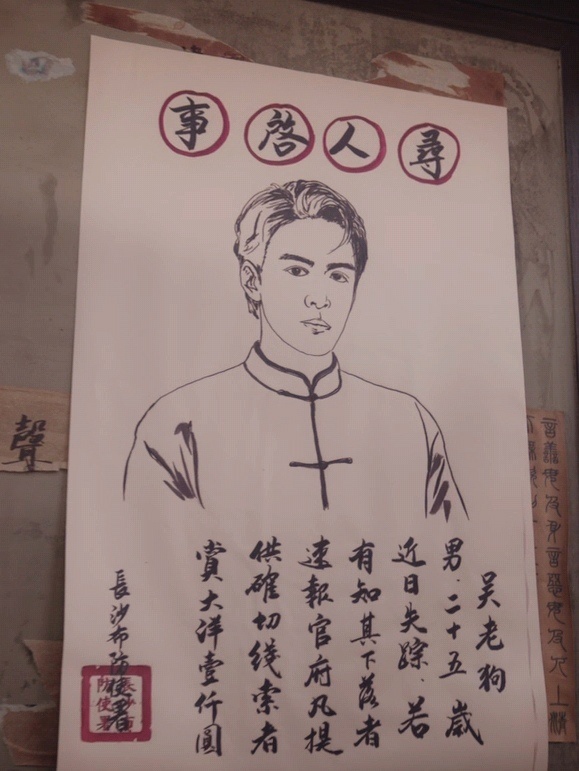 尋人啓事
吴老狗
男.二十五歲
近日失踪、若
有知其下落者
速報官府凡提
供確切线索者
賞大洋壹仟圓
長沙布防使署
聲